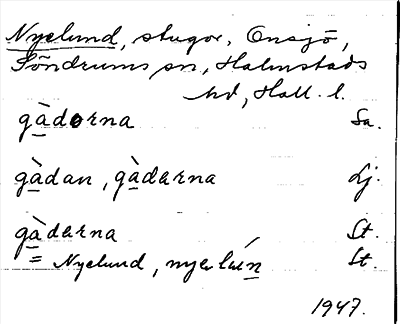 Nyelund, stugor, Onsjö,
Söndrums sn, Halmstads
hd, Hall. l.
gà̱dorna Sa.
gà̱dan, gà̱darna Lj.
gà̱darna St.
= Nyelund, St.
1947.